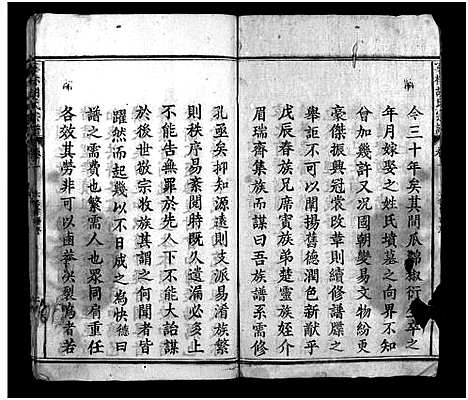 今三十年矣其間瓜綿椒衍生卒之
年月嫁娶之姓氏墳墓之向界不知
曾加幾許又況國朝變易文物紛更
豪傑振興冠裳改革則續修譜牒之
舉詎不可以闡揚舊德潤色新猷乎
戊辰春族兄席賓族弟楚靈族姪介
眉瑞齊集族而謀曰吾族譜系需修
孔亟矣抑知源遠則支派易淆族繁
則秩序易紊閱時既久遺漏必多上
不能無罪於先人下不能大詒謀
於後世敬宗收族其謂之何聞者皆
躍然而起幾以不日成之為快德曰
譜之需費也繁需人也眾同肩重任
各效其勞非可以鹵莽矣裂為者若